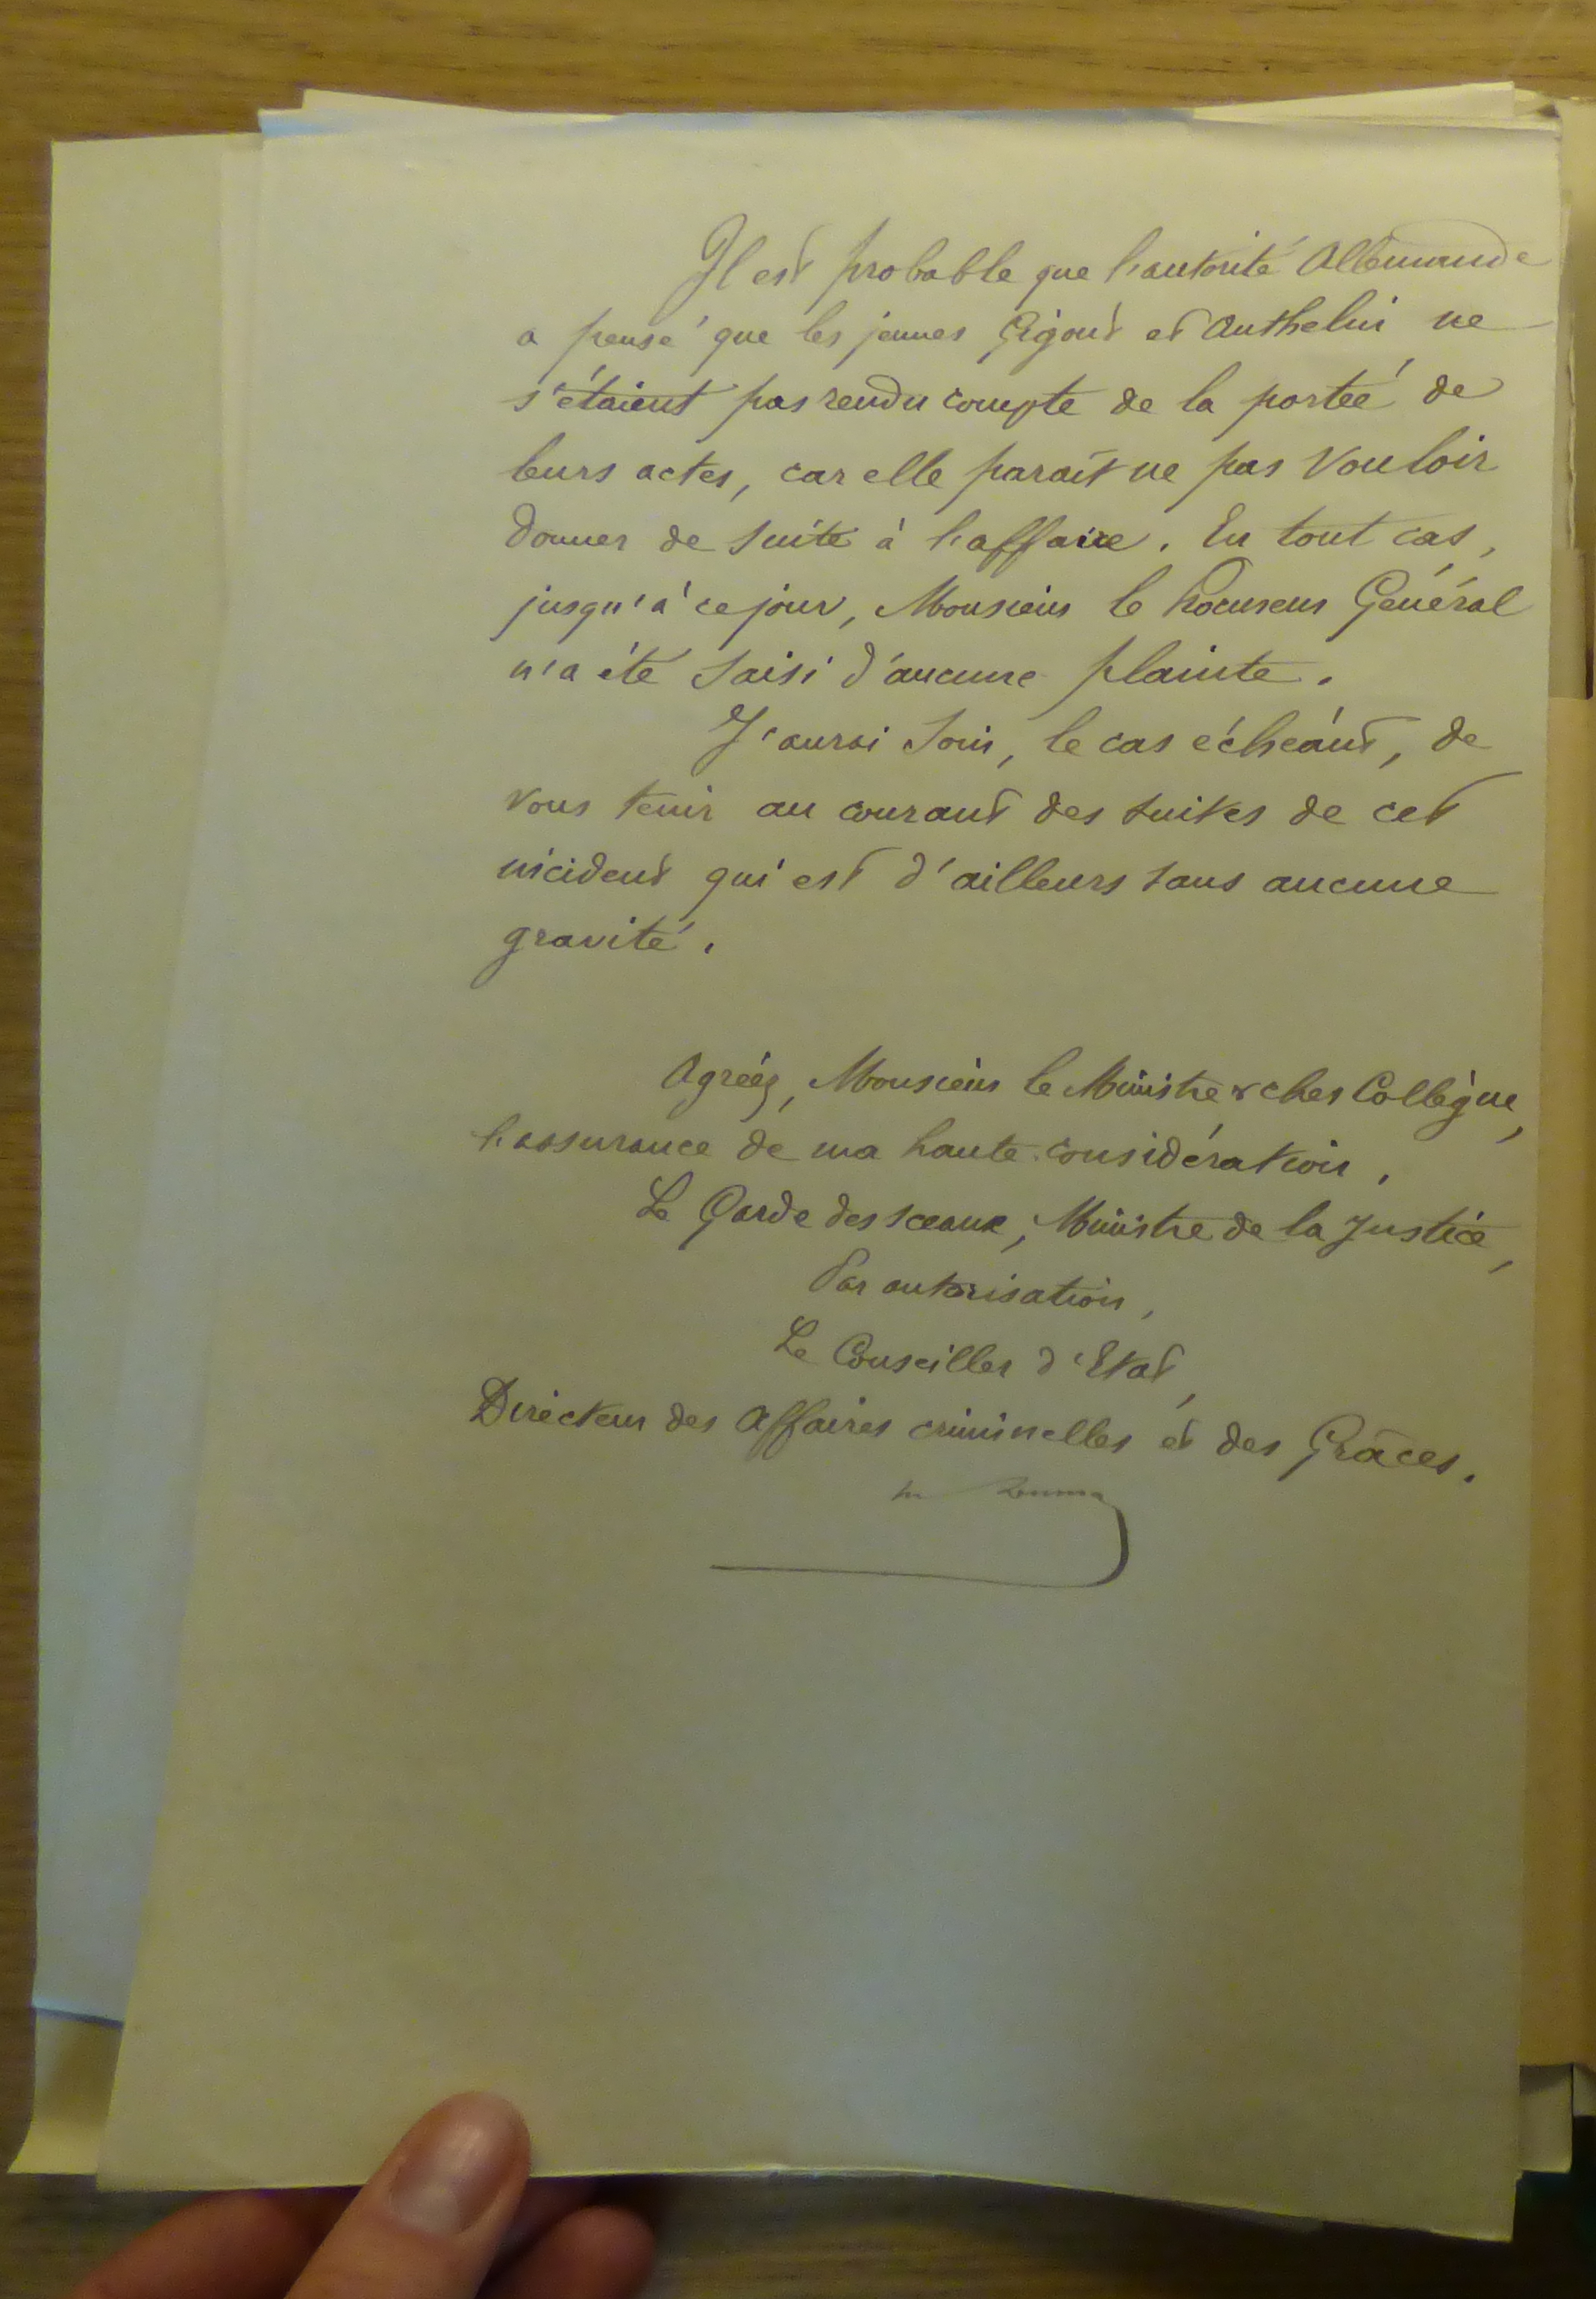 Il est probable que l'autorité Allemande
a pensé que les jeunes Gigout et Anthelin ne
s'étaient pas rendu compte de la portée de
leurs actes, car elle paraît ne pas vouloir
donner de suite à l'affaire. En tout cas,
jusqu'à ce jour, Monsieur le Procureur Général
n'a été saisi d'aucune plainte.
J'aurai soin, le cas échéant, de
vous tenir au courant des suites de cet
incident qui est d'ailleurs sans aucune
gravité.
Agréez, Monsieur le Ministre & cher Collègue,
l'assurance de ma haute considération.
Le Garde des sceaux, Ministre de la Justice,
Par autorisation,
Le Conseiller d'Etat,
Directeur des Affaires criminelles et des Grâces.